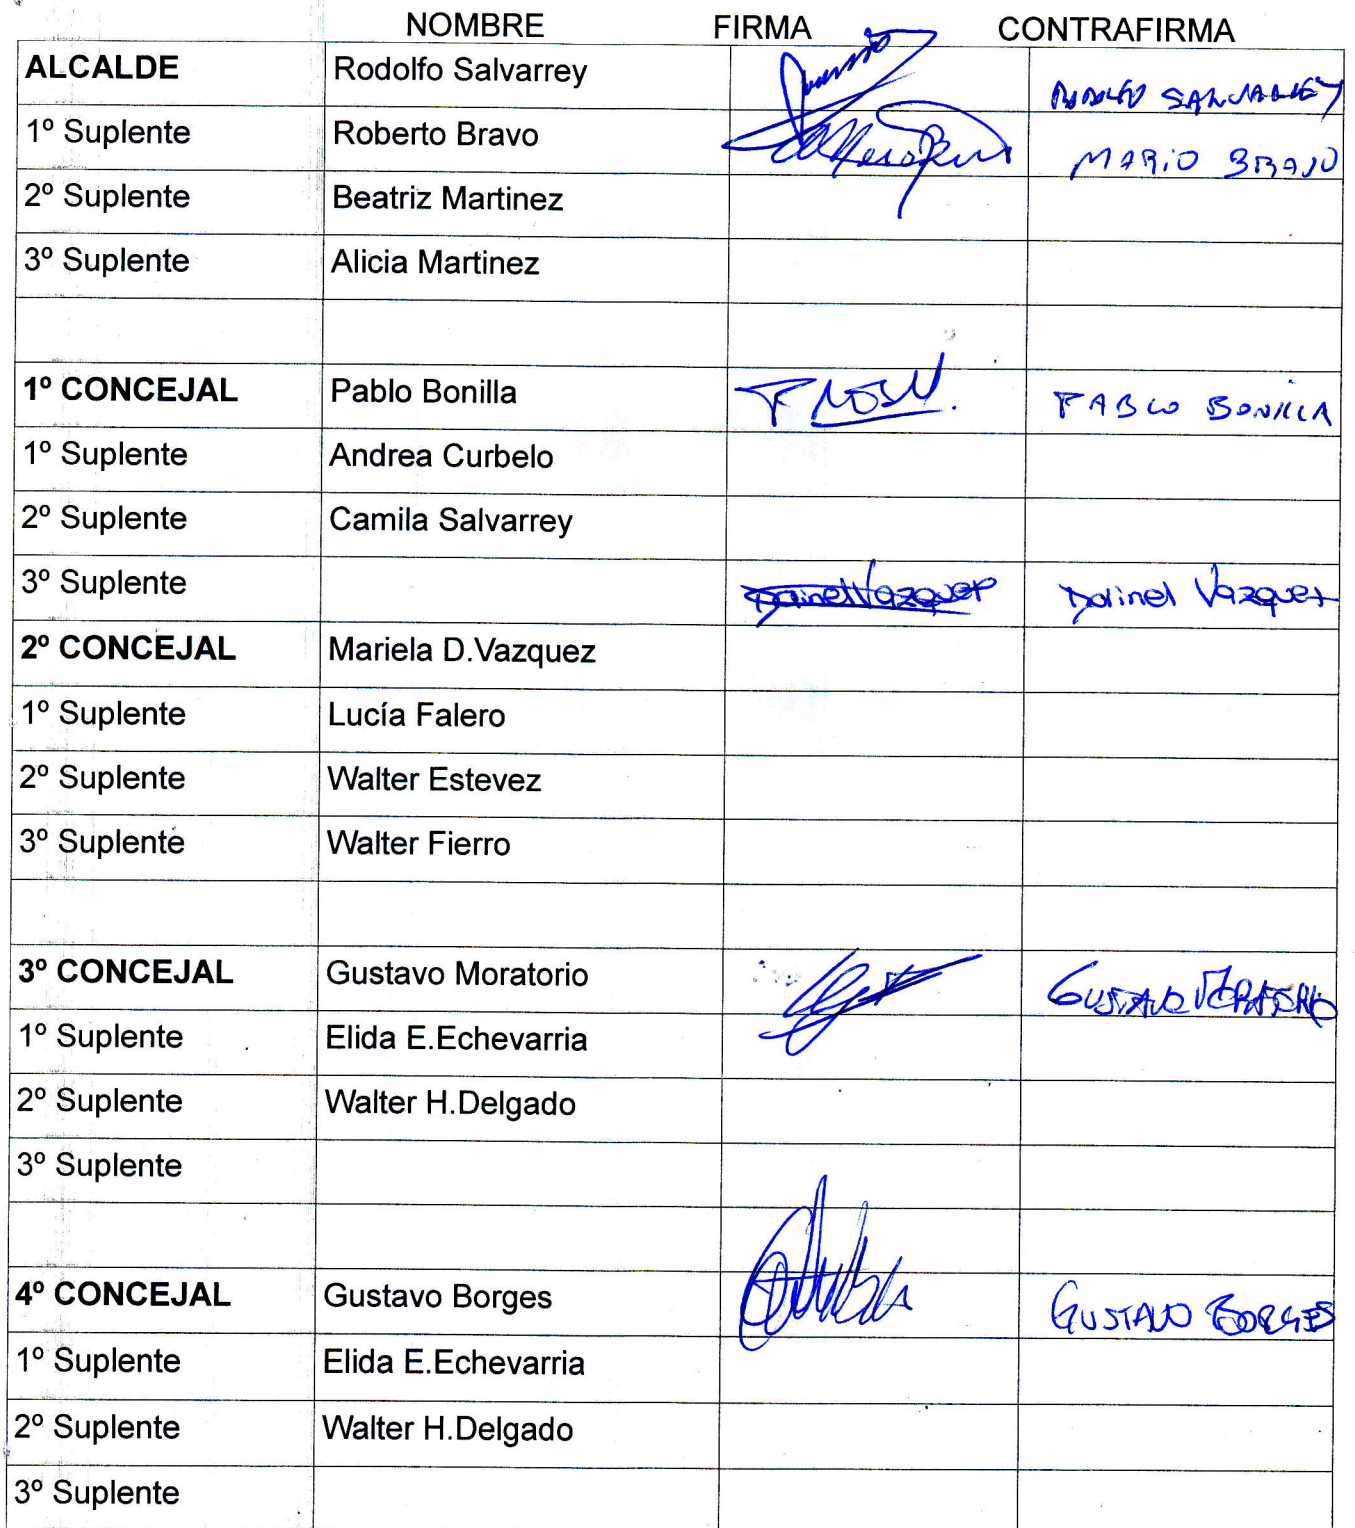 NOMBRE FIRMA CONTRAFIRMA
ALCALDE Rodolfo Salvarrey RODOLFO SALVARREY
1º Suplente Roberto Bravo MARIO BRAVO
2º Suplente Beatriz Martinez
3º Suplente Alicia Martinez
1º CONCEJAL Pablo Bonilla PABLO BONILLA
1º Suplente Andrea Curbelo
2º Suplente Camila Salvarrey
3º Suplente Vazquez Vazquez
2º CONCEJAL Mariela D.Vazquez
1º Suplente Lucía Falero
2º Suplente Walter Estevez
3º Suplente Walter Fierro
3º CONCEJAL Gustavo Moratorio GUSTAVO MORATORIO
1º Suplente Elida E.Echevarria
2º Suplente Walter H.Delgado
3º Suplente
4º CONCEJAL Gustavo Borges GUSTAVO BORGES
1º Suplente Elida E.Echevarria
2º Suplente Walter H.Delgado
3º Suplente